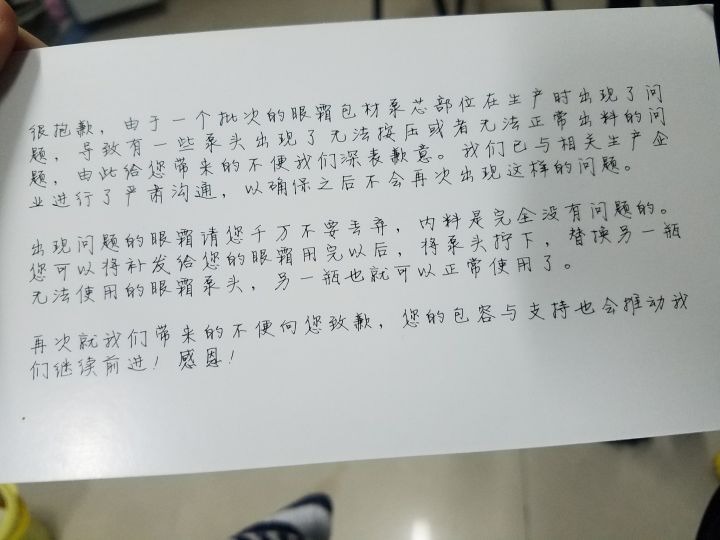 很抱歉，由于一个批次的眼霜包材泵芯部位在生产时出现了问
题，导致有一些泵头出现了无法按压或者无法正常出料的问
题，由此给您带来的不便我们深表歉意。我们已与相关生产企
业进行了严肃沟通，以确保之后不会再次出现这样的问题。
出现问题的眼霜请您千万不要丢弃，内料是完全没有问题的。
您可以将补发给您的眼霜用完以后，将泵头拧下，替换另一瓶
无法使用的眼霜泵头，另一瓶也就可以正常使用了。
再次就我们带来的不便向您致歉，您的包容与支持也会推动我
们继续前进！感恩！